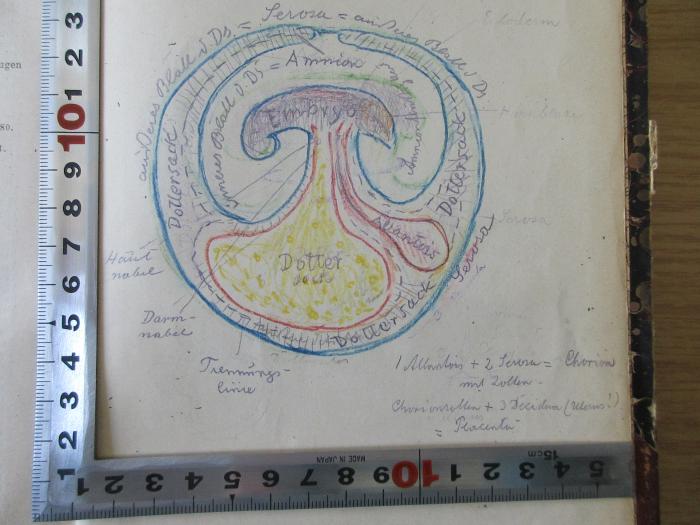 äußeres Blatt d. Ds. = Serosa = äußeres Blatt d. Ds
Ektoderm
inneres Blatt d. Ds = Amnion
Amnion
Embryo
Dottersack
Dottersack
Serosa
Allantois
Serosa
Dotter
sack
Dottersack
Haut
nabel
Darm-
nabel
Trennungs-
linie
1 Allantois + 2 Serosa = Chorion
mit Zotten -
Chorionzotten + 3 Decidua (Uterus!)
= Placenta
ugen
80.
3
2
1
10
9
8
7
6
5
4
3
2
1
1
2
3
4
5
6
7
8
9
10
1
2
3
4
5
MADE IN JAPAN
15cm